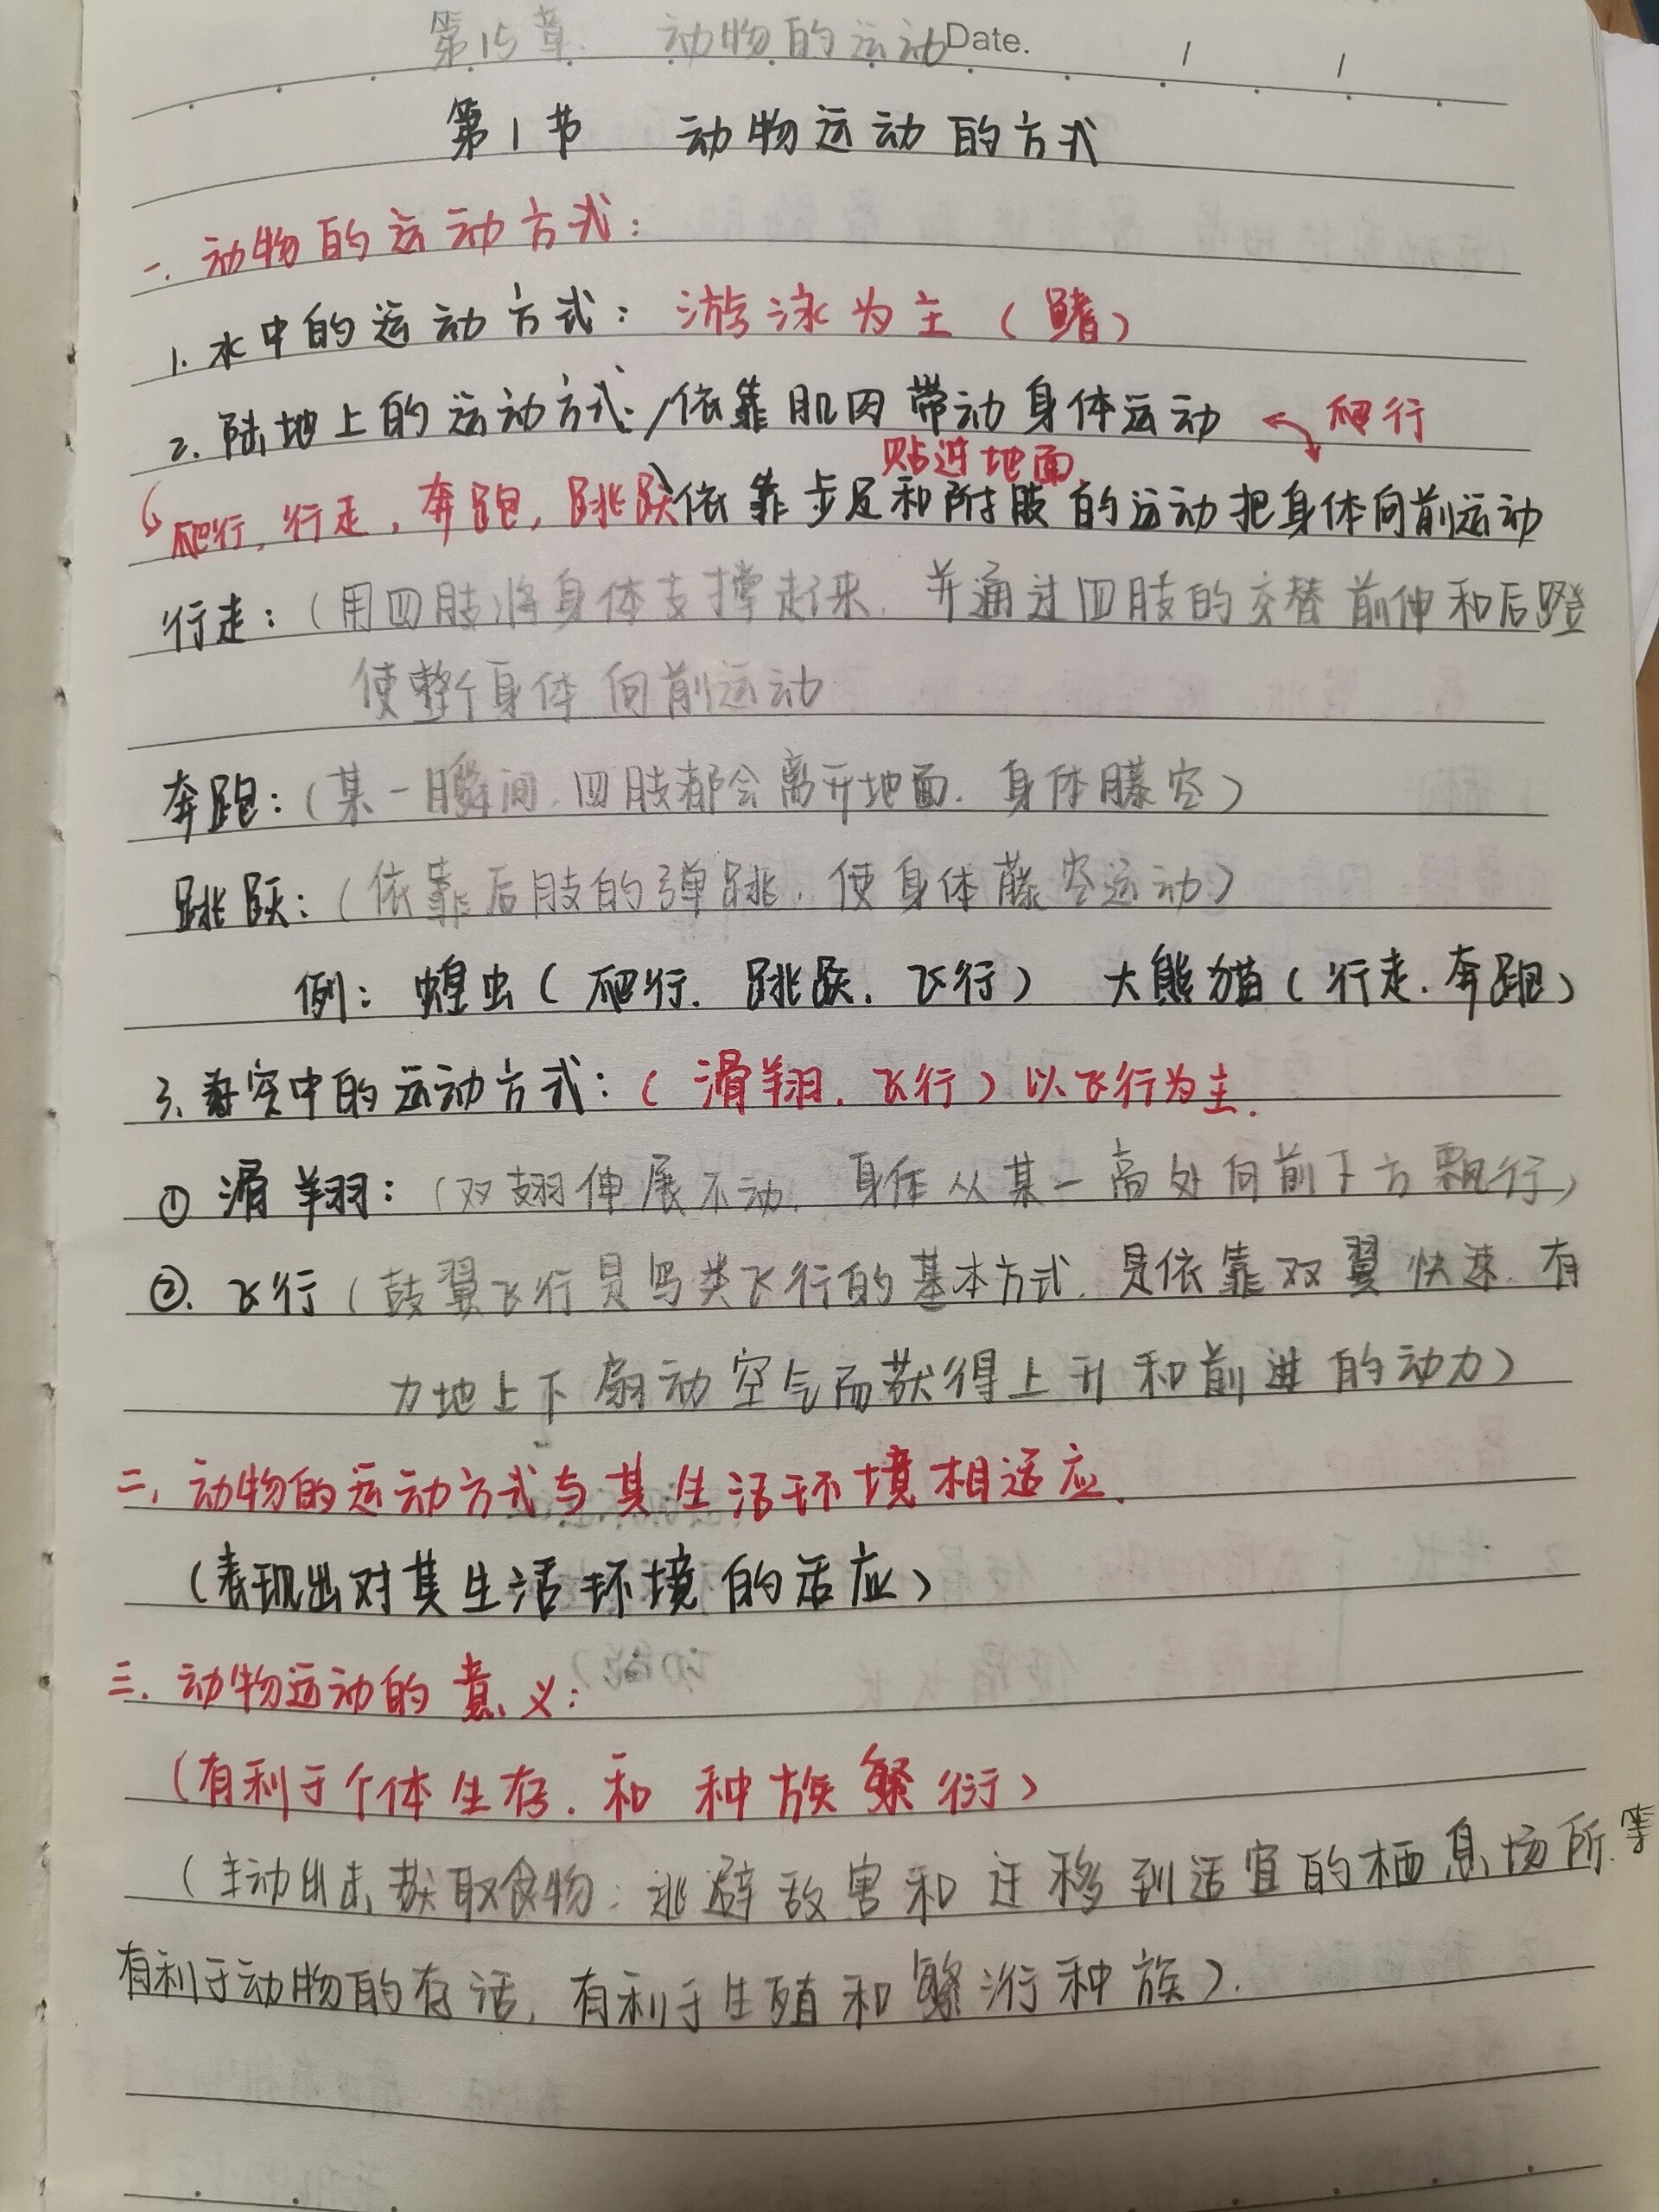 第15章. 动物的运动Date. / /
第1节 动物运动的方式
一. 动物的运动方式:
1. 水中的运动方式: 游泳为主 (鳍)
2. 陆地上的运动方式: 依靠肌肉带动身体运动 爬行
贴进地面
爬行, 行走, 奔跑, 跳跃 依靠步足和附肢的运动把身体向前运动
行走: (用四肢)将身体支撑起来. 并通过四肢的交替前伸和后蹬
使整个身体向前运动
奔跑: (某一瞬间. 四肢都会离开地面. 身体藤空)
跳跃: (依靠后肢的弹跳. 使身体藤空运动)
例: 蝗虫 (爬行. 跳跃. 飞行) 大熊猫 (行走. 奔跑)
3. 空中的运动方式: (滑翔. 飞行) 以飞行为主.
① 滑翔: (双翅伸展不动. 身体从某一高处向前下方飘行)
②. 飞行 (鼓翼飞行是鸟类飞行的基本方式. 是依靠双翼快速. 有
力地上下扇动空气而获得上升和前进的动力)
二. 动物的运动方式与其生活环境相适应.
(表现出对其生活环境的适应)
三. 动物运动的意义:
(有利于个体生存. 和种族繁衍)
(主动出去获取食物. 逃避敌害和迁移到适宜的栖息场所. 等
有利于动物的存活, 有利于生殖和繁衍种族).